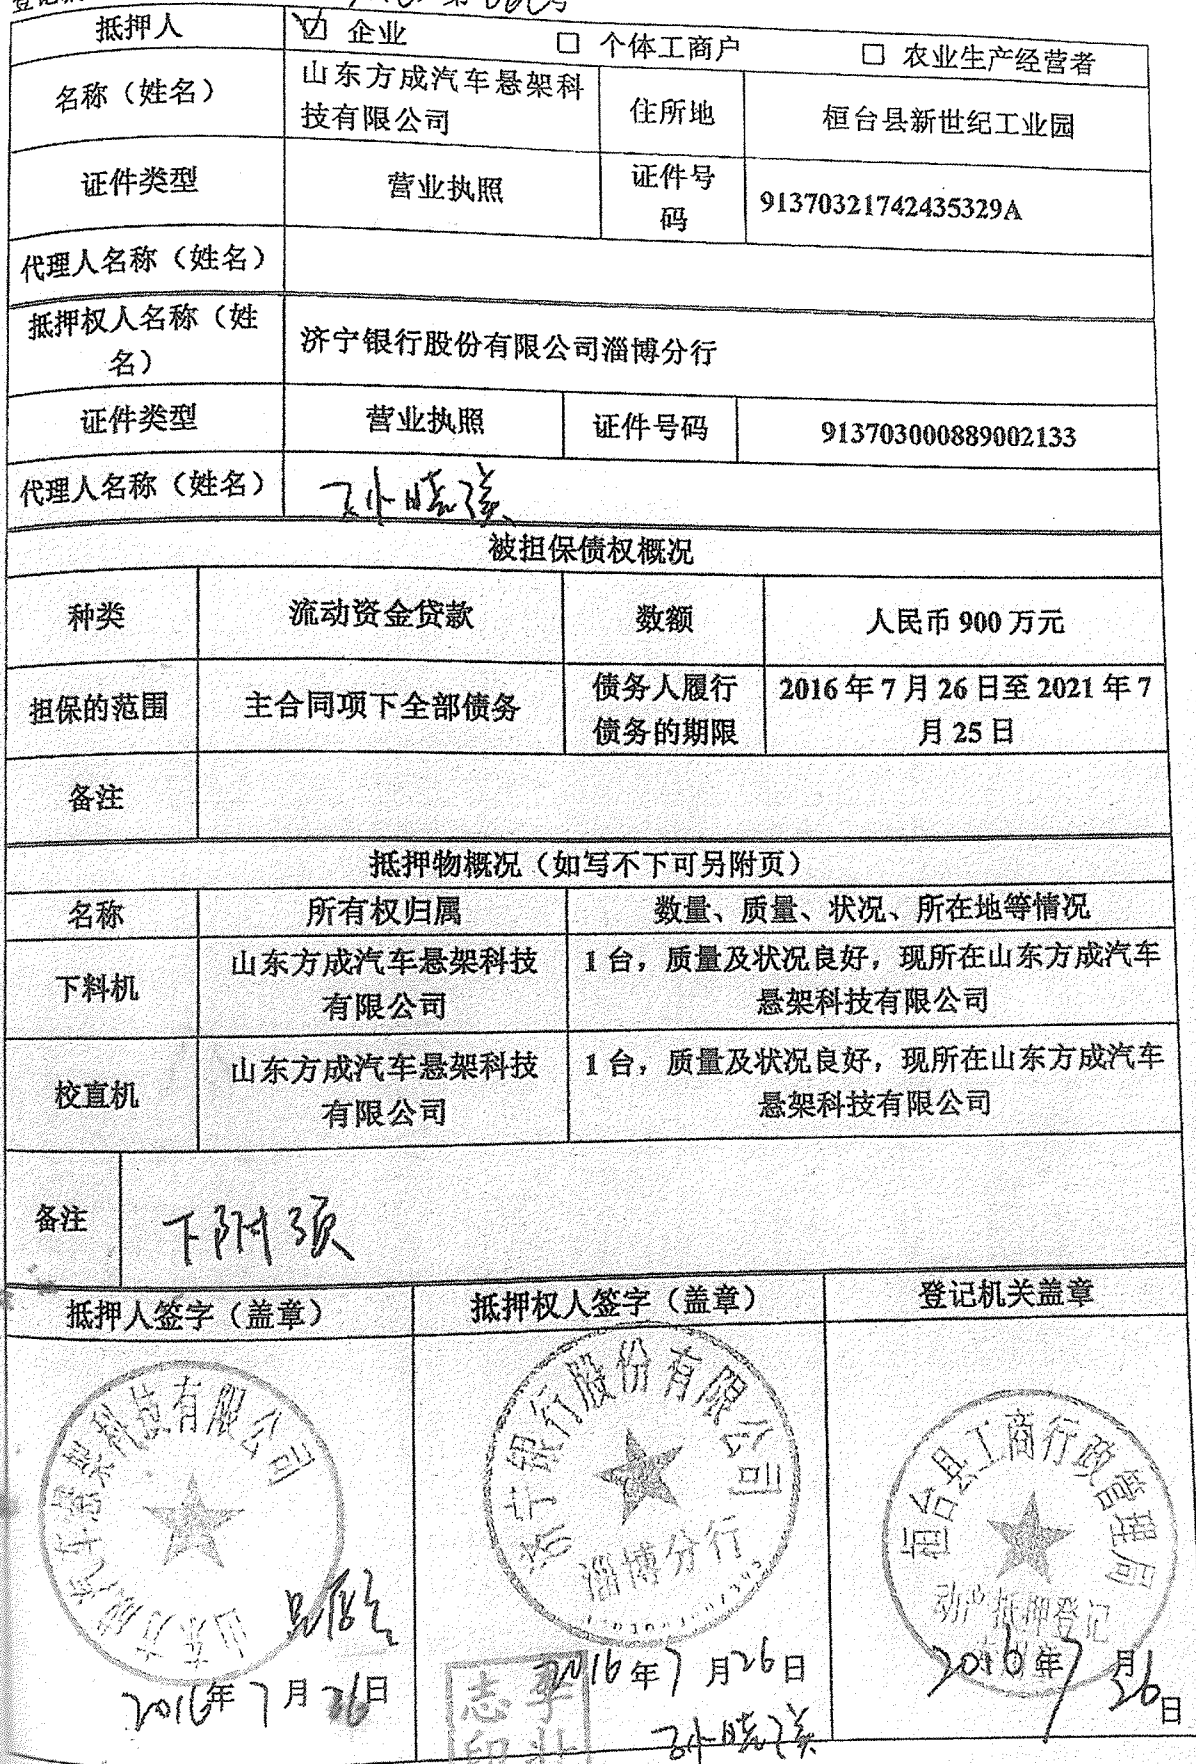 抵押人 企业 个体工商户 农业生产经营者
名称（姓名） 山东方成汽车悬架科技有限公司 住所地 桓台县新世纪工业园
证件类型 营业执照 证件号码 91370321742435329A
代理人名称（姓名）
抵押权人名称（姓名） 济宁银行股份有限公司淄博分行
证件类型 营业执照 证件号码 913703000889002133
代理人名称（姓名） 孙晓瑛
被担保债权概况
种类 流动资金贷款 数额 人民币 900 万元
担保的范围 主合同项下全部债务 债务人履行债务的期限 2016 年 7 月 26 日至 2021 年 7 月 25 日
备注
抵押物概况（如写不下可另附页）
名称 所有权归属 数量、质量、状况、所在地等情况
下料机 山东方成汽车悬架科技有限公司 1 台，质量及状况良好，现所在山东方成汽车悬架科技有限公司
校直机 山东方成汽车悬架科技有限公司 1 台，质量及状况良好，现所在山东方成汽车悬架科技有限公司
备注 下附页
抵押人签字（盖章） 抵押权人签字（盖章） 登记机关盖章
山东方成汽车悬架科技有限公司
济宁银行股份有限公司
淄博分行
桓台县工商行政管理局
动产抵押登记
2016年7月26日
2016年7月26日
2016年7月26日
孙晓瑛